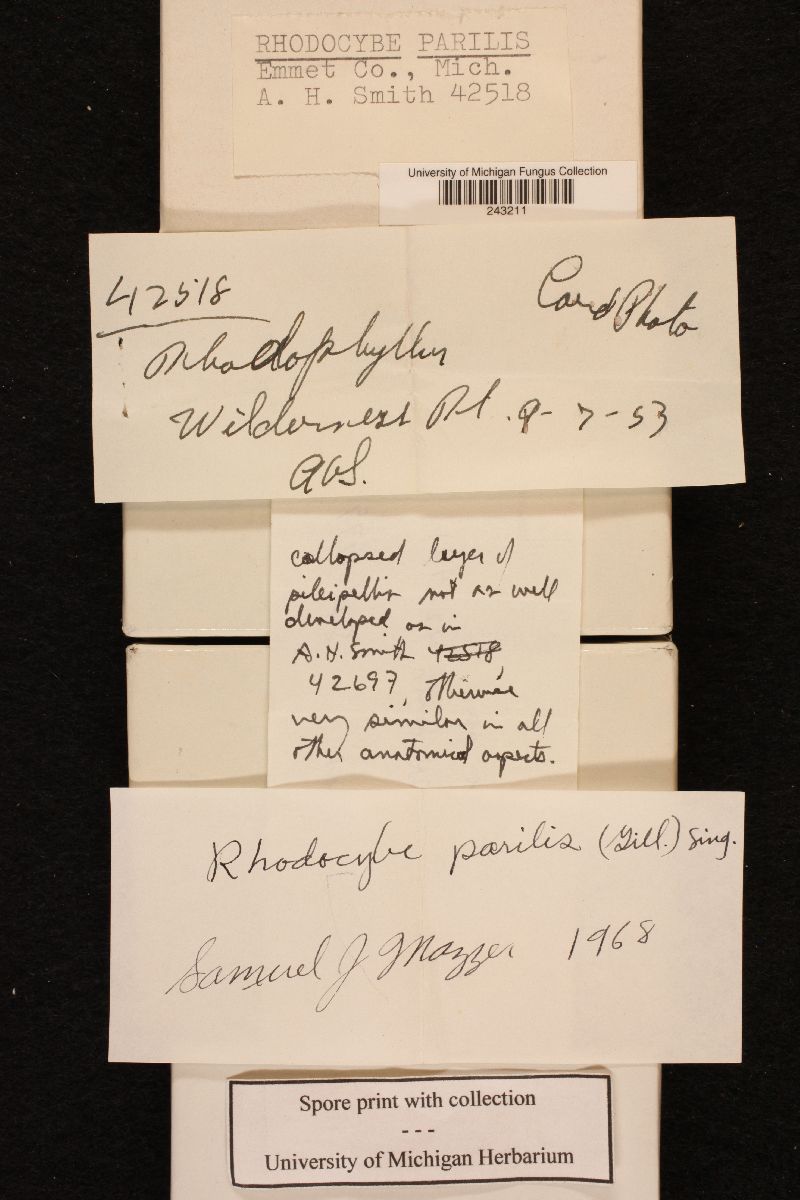 RHODOCYBE PARILIS
Emmet Co., Mich.
A. H. Smith 42518
University of Michigan Fungus Collection
243211
42518
Card Photo
Rhodophyllus
Wilderness Pt. 9-7-53
AHS.
collapsed layer of
pileipellis not as well
developed as in
A.H. Smith 42518,
42697, otherwise
very similar in all
other anatomical aspects.
Rhodocybe parilis (Gill.) Sing.
Samuel J Mazzer 1968
Spore print with collection
---
University of Michigan Herbarium